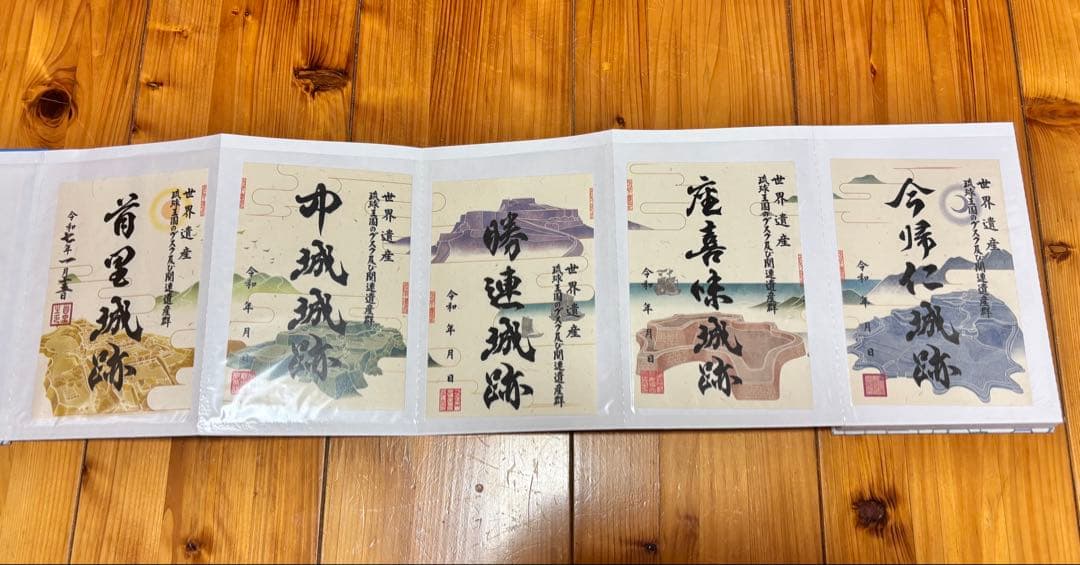 世界遺産
琉球王国のグスク及び関連遺産群
首里城跡
令和七年一月
世界遺産
琉球王国のグスク及び関連遺産群
中城城跡
令和 年 月 日
世界遺産
琉球王国のグスク及び関連遺産群
勝連城跡
令和 年 月 日
世界遺産
琉球王国のグスク及び関連遺産群
座喜味城跡
令和 年 月 日
世界遺産
琉球王国のグスク及び関連遺産群
今帰仁城跡
令和 年 月 日